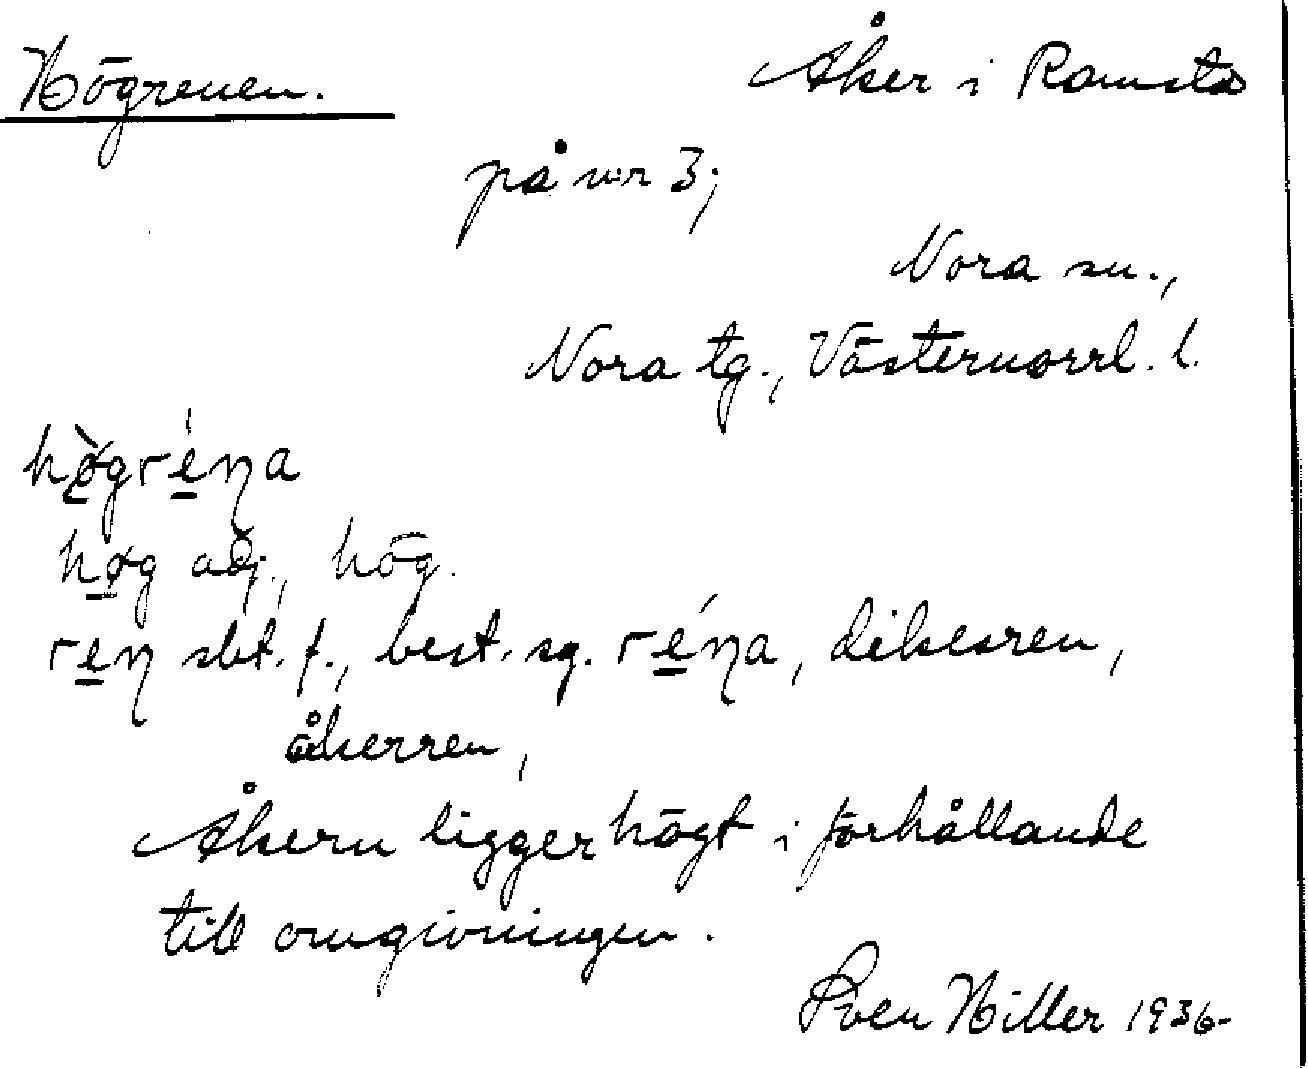 Högrenen. Åker i Ramsta
på nr 3;
Nora sn.,
Nora tg., Västernorrl. l.
hø̀gréŋa
høg adj., hög.
reŋ sbt. f., best. sg. réŋa, dikesren,
åkerren,
Åkern ligger högt i förhållande
till omgivningen.
Sven Hiller 1936